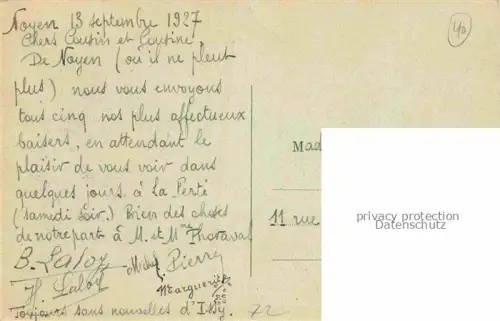 Noyen 13 septembre 1927
Chers Cousin et Cousine,
De Noyen (où il ne pleut
plus) nous vous envoyons
tous cinq nos plus affectueux
baisers, en attendant le
plaisir de vous voir dans
quelques jours à La Ferté
(samedi soir.) Bien des choses
de notre part à M. et Mme Thoraval
B. Laloy Michel Pierre
H. Laloy Marguerite
Toujours sans nouvelles d'Issy.
72
40
Mad
11 rue
privacy protection
Datenschutz